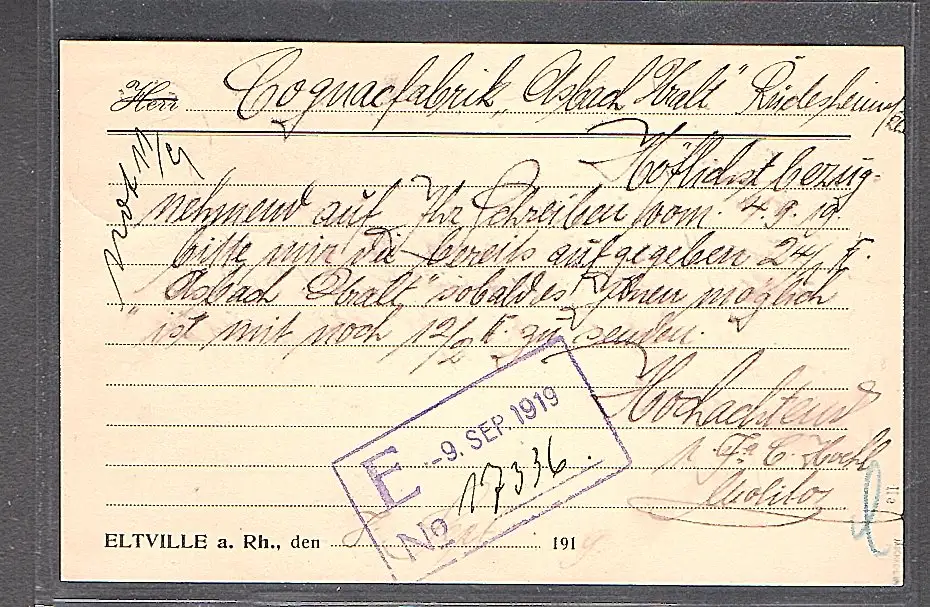 Herr Cognacfabrik „Asbach Uralt" Rüdesheim a/Rh
Höflichst bezug-
nehmend auf Ihr Schreiben vom 4.9.19.
bitte mir die bereits aufgegeben 24/1 Fl.
„Asbach Uralt" sobald es Ihnen möglich
ist mit noch 12/2 Fl. zu senden.
Hochachtend
Molitor
E -9. SEP. 1919
No 17336.
ELTVILLE a. Rh., den 191